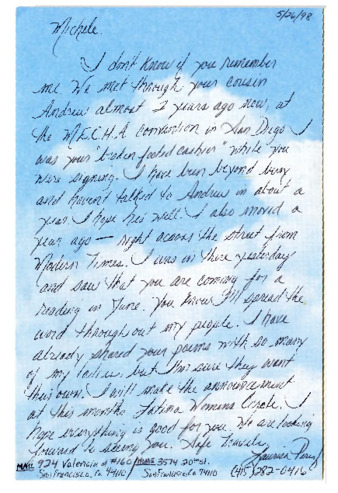 5/26/98
Michele,
I don't know if you remember
me. We met through your cousin
Andrew almost 2 years ago now, at
the M.E.C.H.A convention in San Diego. I
was your "broken footed cashier" while you
were signing. I have been beyond busy
and haven't talked to Andrew in about a
year. I hope he's well. I also moved a
year ago — right across the street from
Modern Times. I was in there yesterday
and saw that you are coming for a
reading in June. You know I'll spread the
word throughout my people. I have
already shared your poems with so many
of my but I'm sure they want
their own. I will make the announcement
at this months Latina Womens Circle. I
hope everything is good for you. We are looking
forward to seeing you. Safe Travels,
MAIL 924 Valencia st #160 HOME 3574 20th st.
San Francisco, Ca 94110 San Francisco, Ca 94110 (415) 282-0416